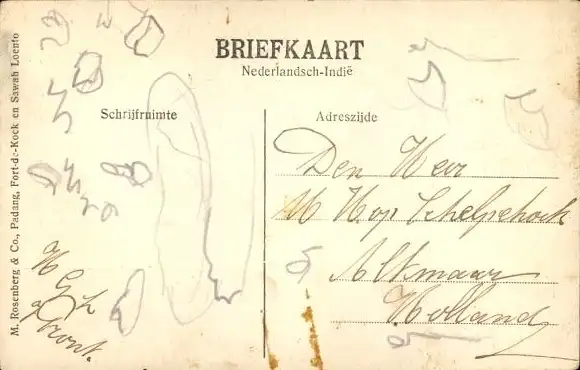 BRIEFKAART
Nederlandsch-Indië
Schrijfruimte
Adreszijde
Den Heer
Hop Schelphoek
Alkmaar
Holland
M. Rosenberg & Co., Padang, Fort-d:-Kock en Sawah Loento